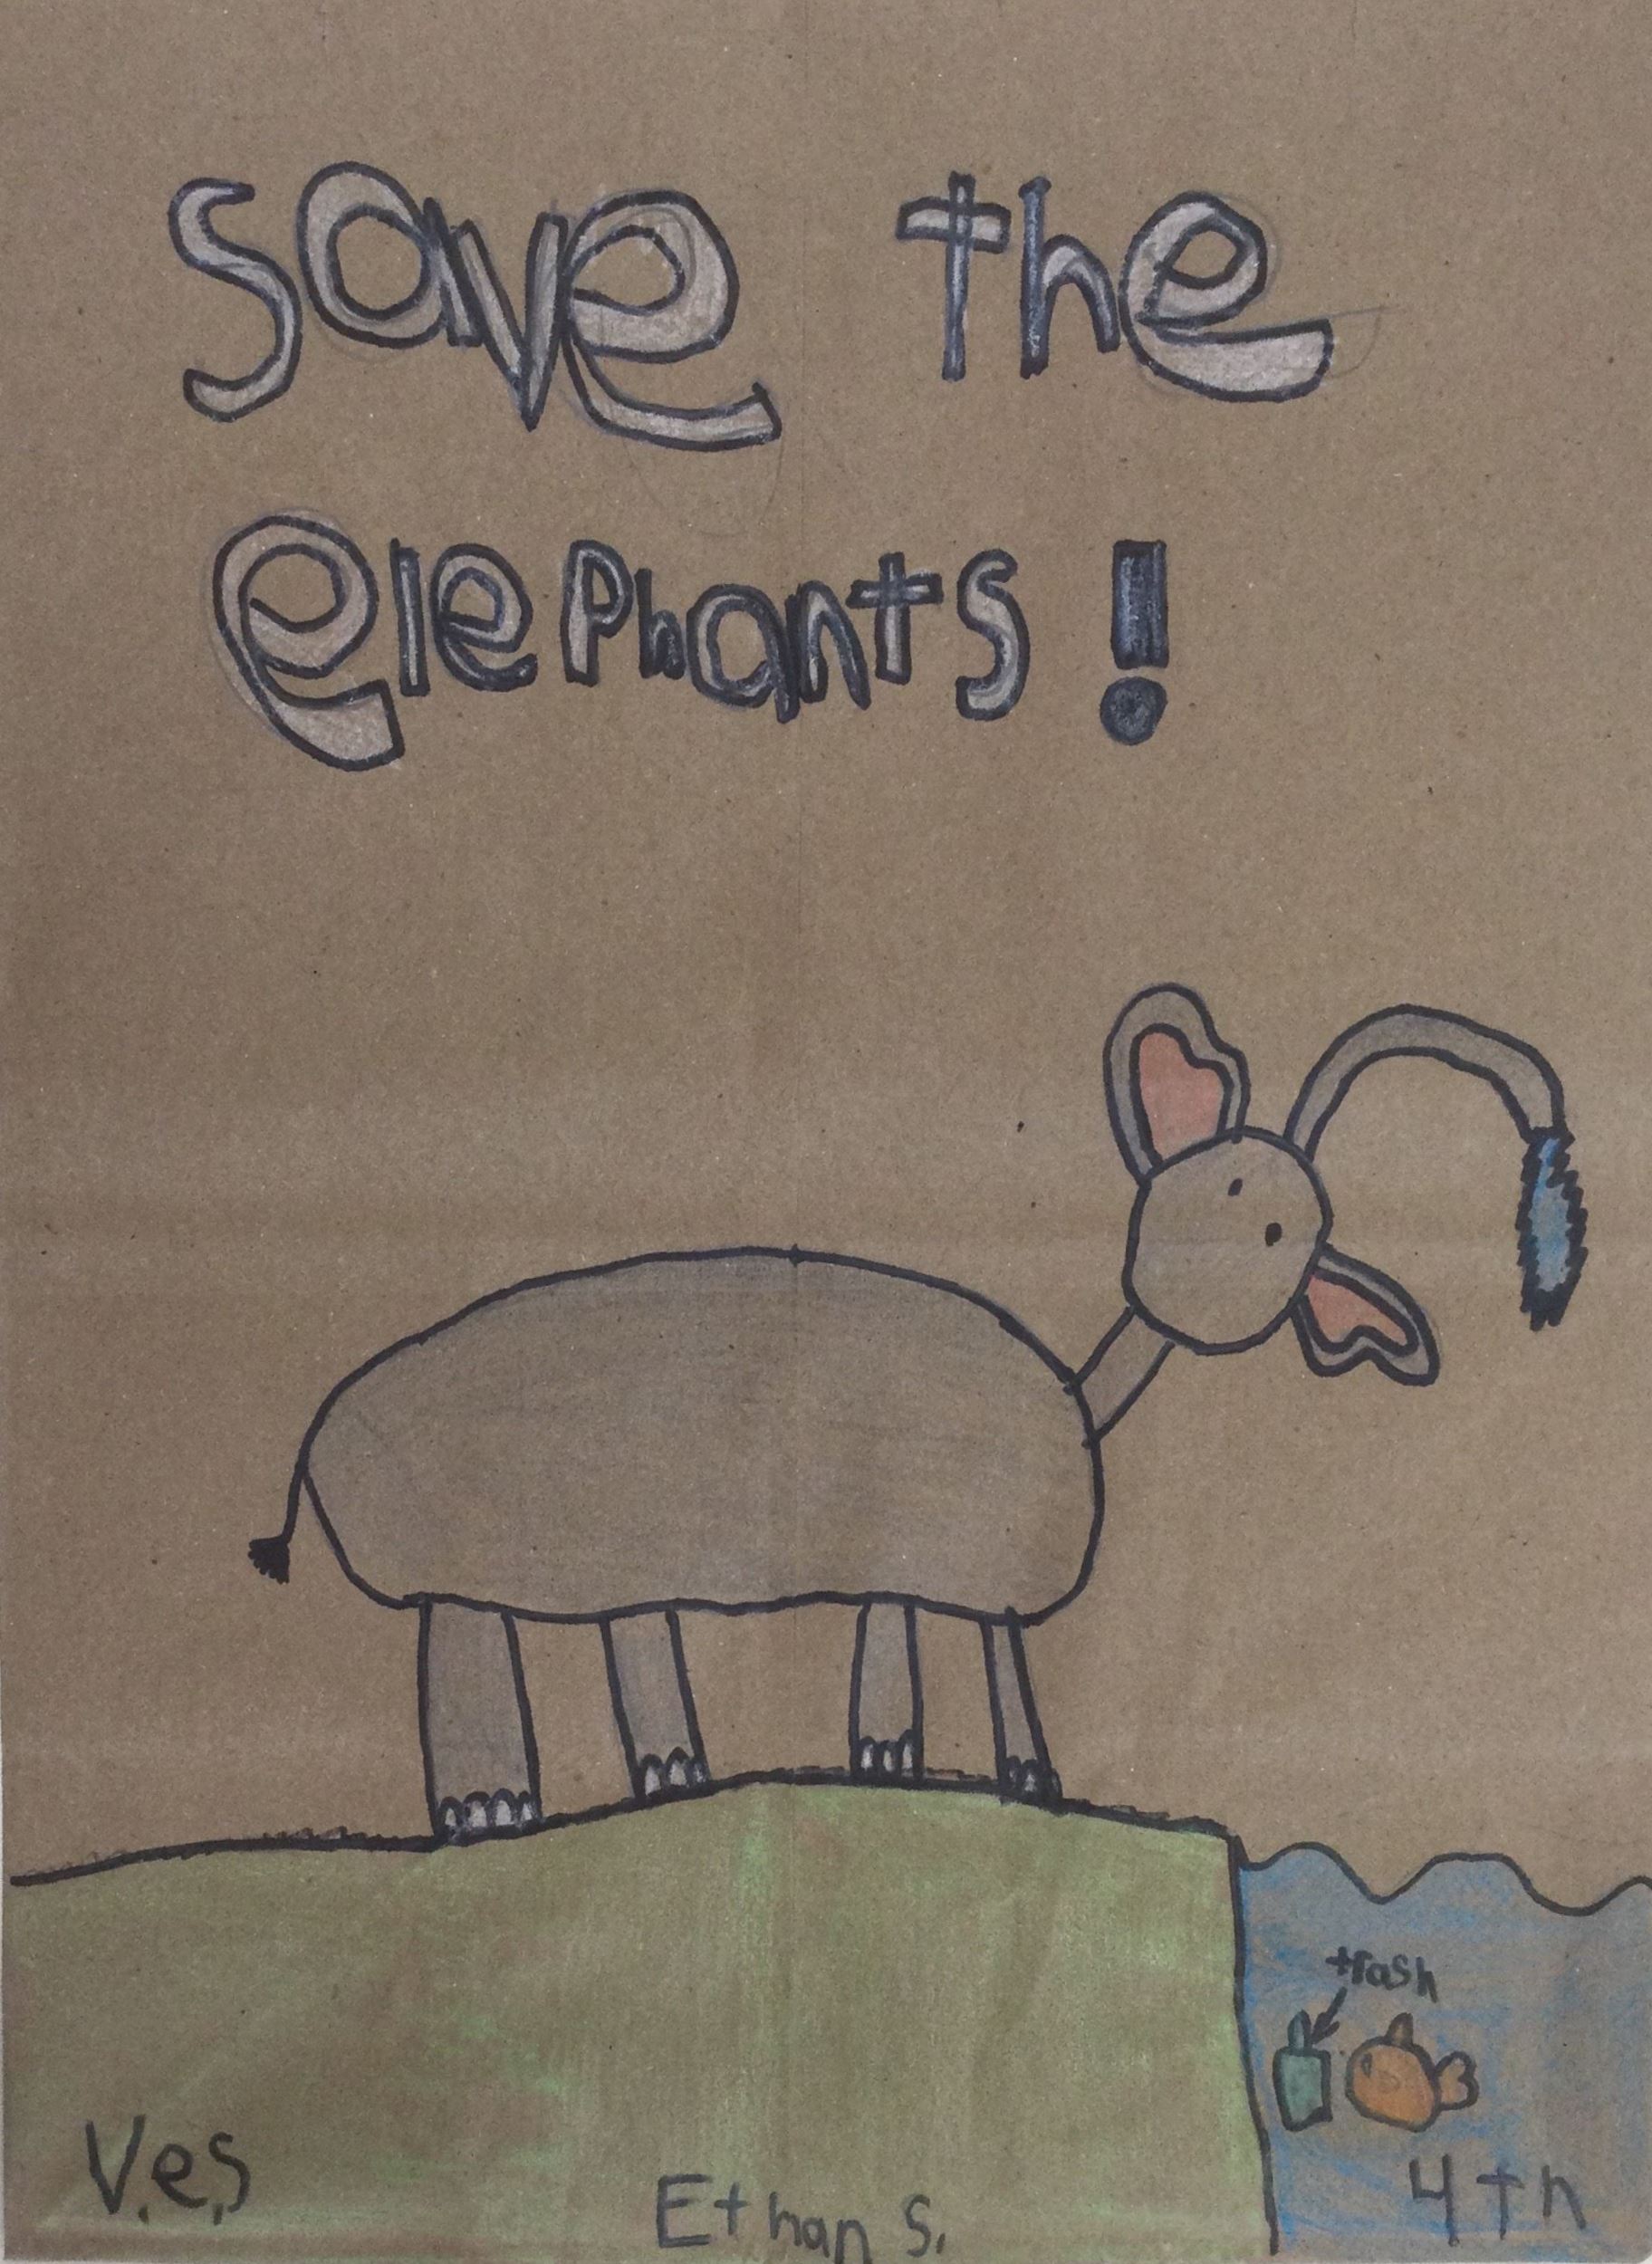 save the
elephants!
trash
V.e.s
Ethan S.
4th